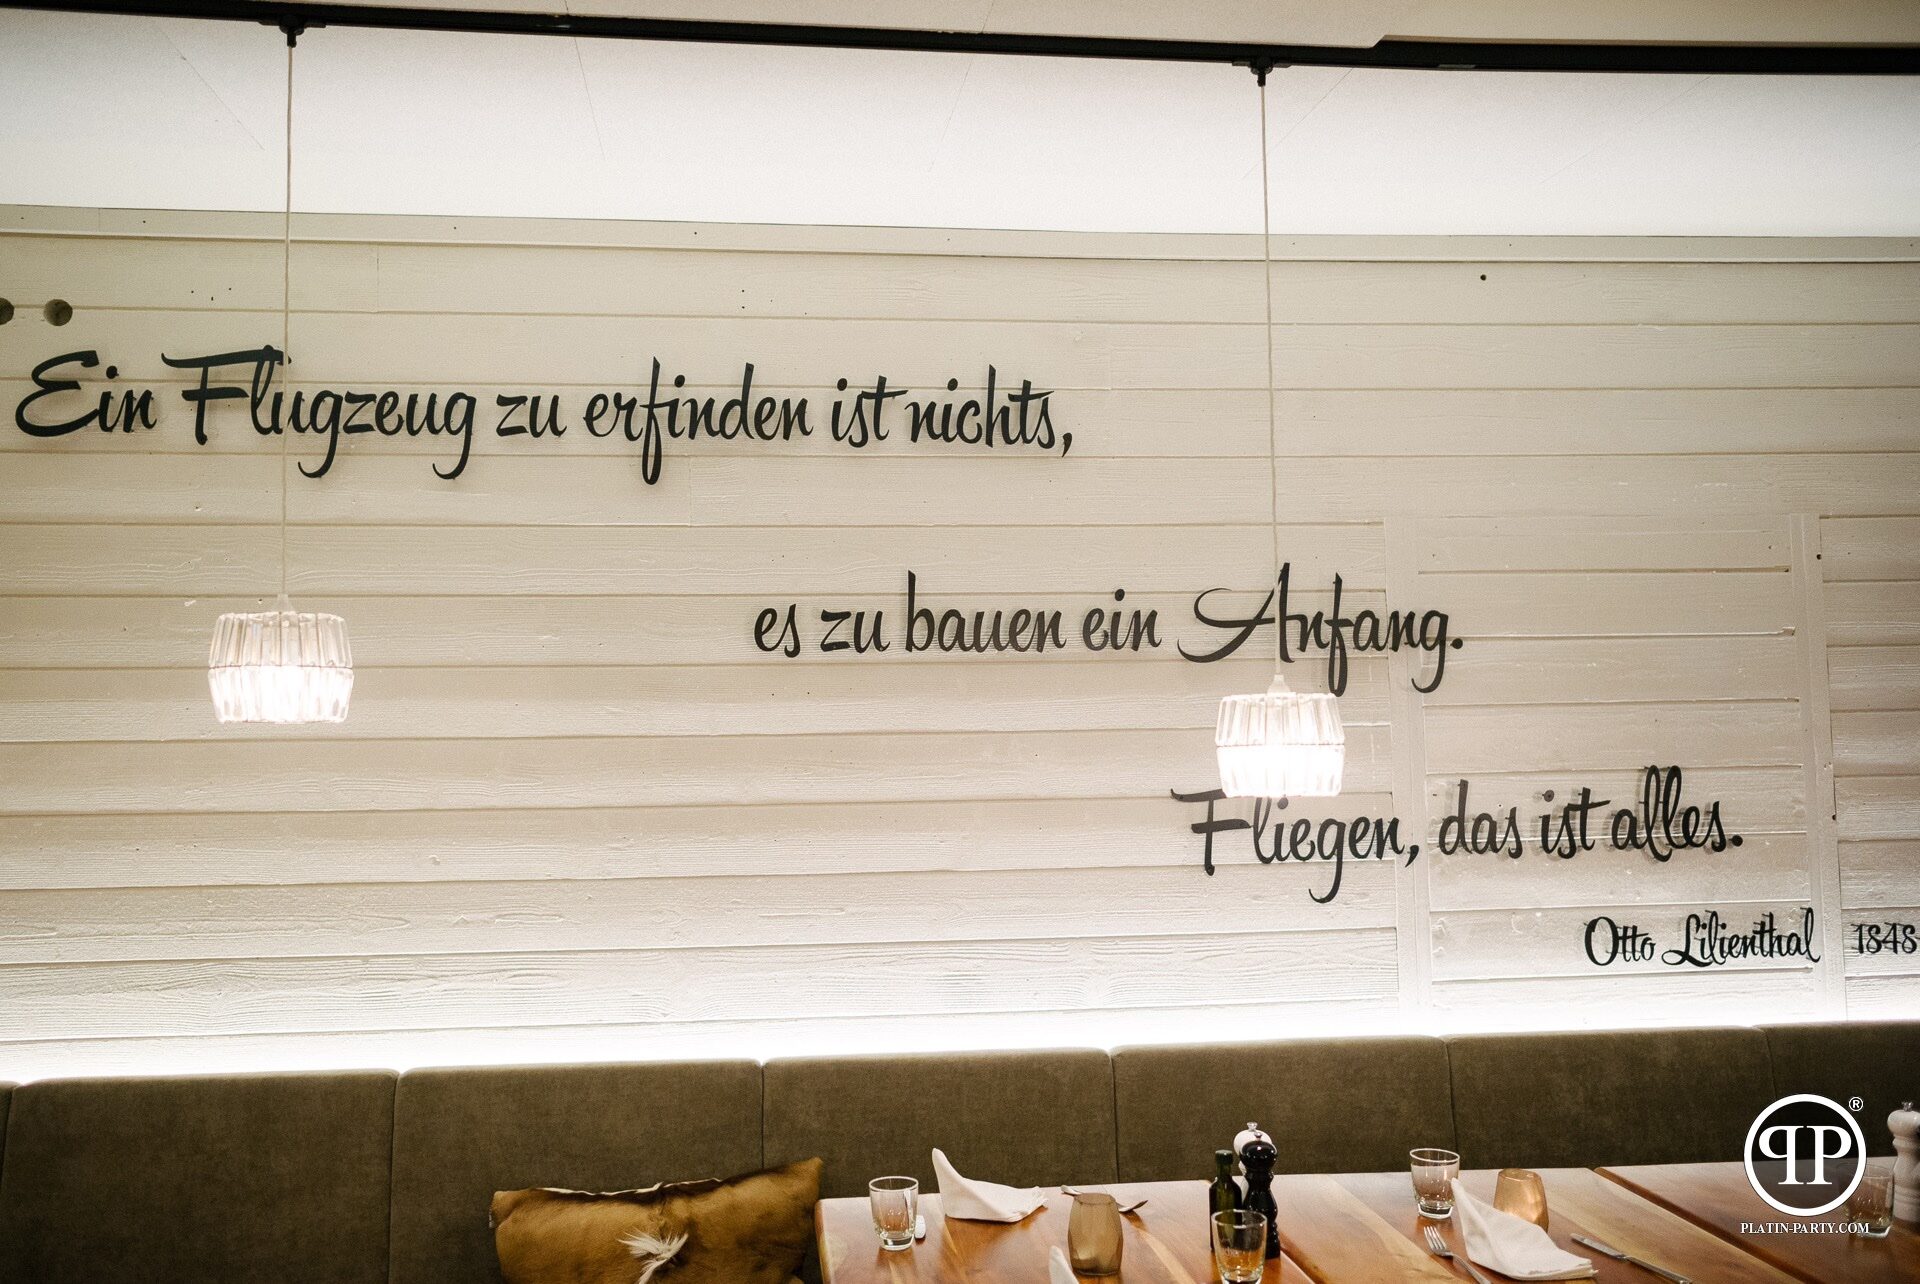 Ein Flugzeug zu erfinden ist nichts,
es zu bauen ein Anfang.
Fliegen, das ist alles.
Otto Lilienthal 1848-
PP®
PLATIN-PARTY.COM